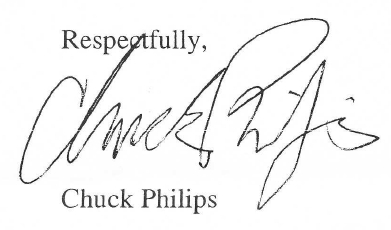 Respectfully,
Chuck Philips
Chuck Philips